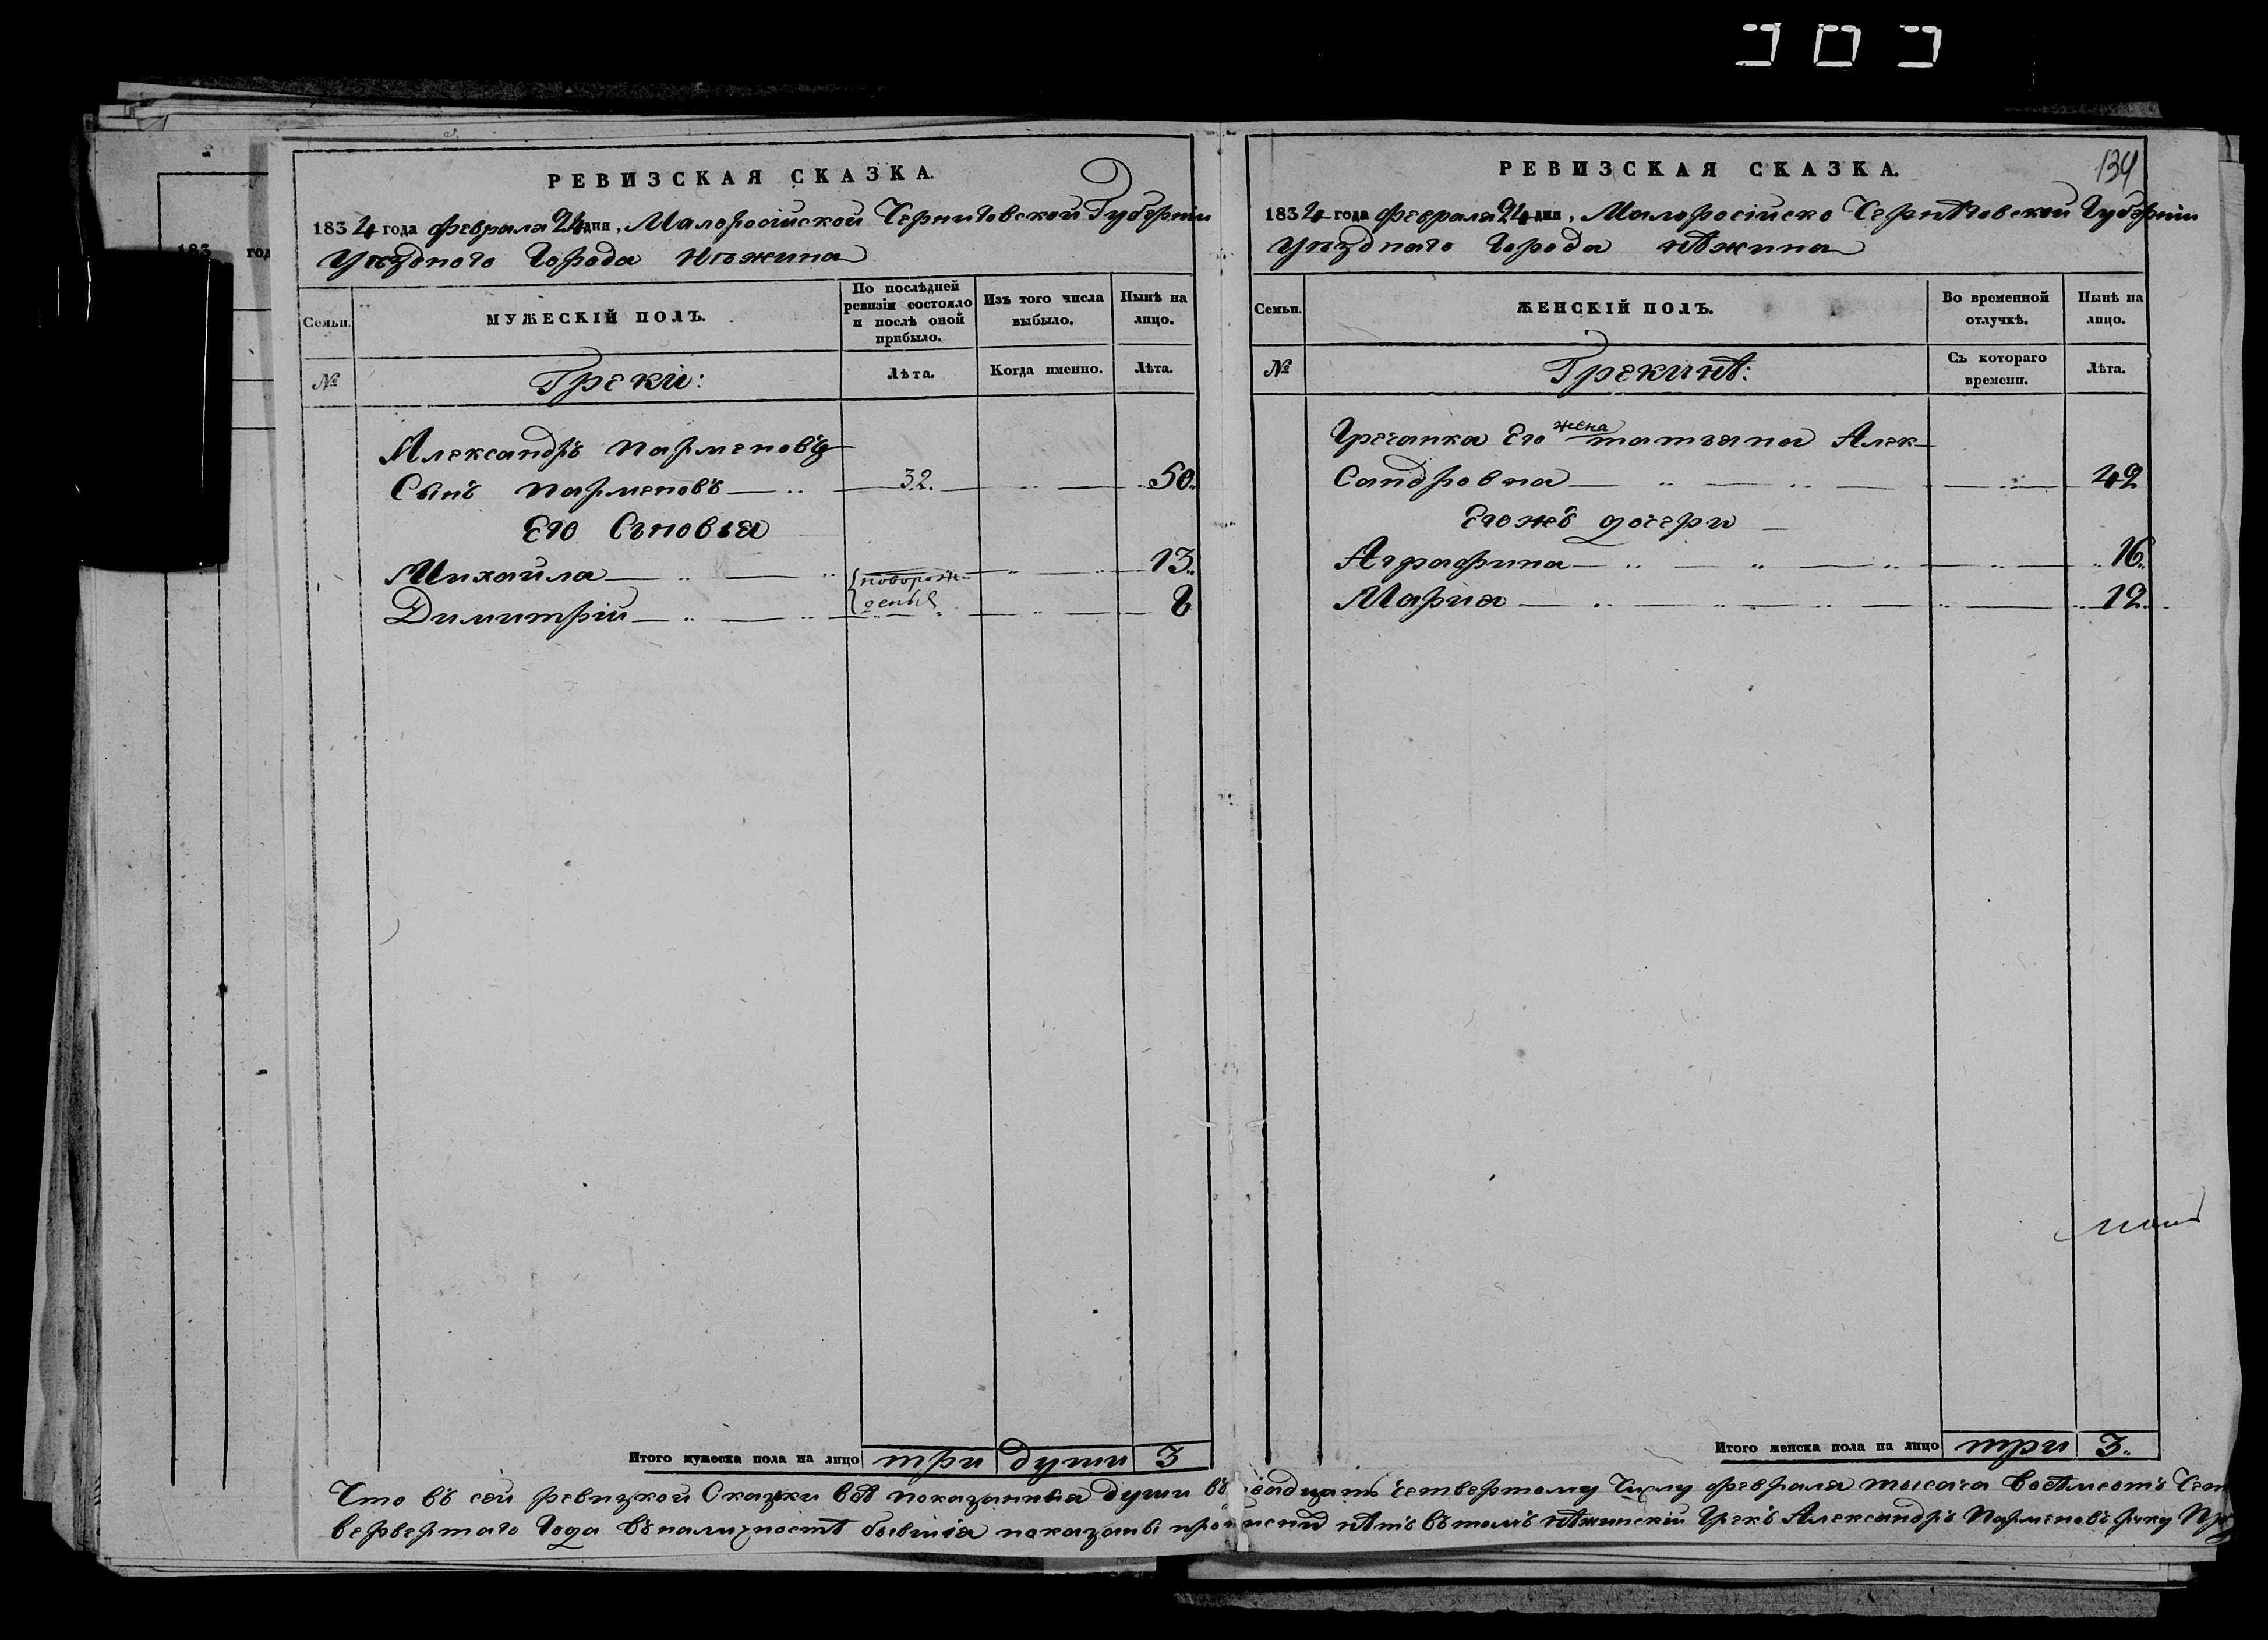 РЕВИЗСКАЯ СКАЗКА.
1834 года февраля 24 дни, Малоросійской Черниговской Губерніи
уѣзднаго Города Нѣжина
Семьи. МУЖЕСКІЙ ПОЛЪ. По послѣдней ревизіи состояло и послѣ оной прибыло. Изъ того числа выбыло. Нынѣ на лицо.
№ Греки: Лѣта. Когда именно. Лѣта.
Александръ Парменовъ
Сынъ Парменовъ 32. 50.
Его Сыновья
Михайла новорож- 13.
Димитрій дены 8
Итого мужеска пола на лицо три души 3
РЕВИЗСКАЯ СКАЗКА.
134
1834 года февраля 24 дни, Малоросійско Чернѣговской Губерніи
уѣзднаго Города нѣжина
Семьи. ЖЕНСКІЙ ПОЛЪ. Во временной отлучкѣ. Нынѣ на лицо.
№ Грекинѣ: Съ котораго времени. Лѣта.
Гречанка Его жена татьяна Алек-
Сандровна 42
Егожъ дочери
Аграфина 16.
Мария 12.
Итого женска пола на лицо три 3.
Что въ сей ревизкой Сказки всѣ показанныа души въ двадцать четвертому Числу февраля тысяча восѣмсотъ Чет
вертаго Года въ наличностѣ бывшіа показаны нѣтъ въ томъ нѣжинскій Грекъ Александръ Парменовъ руку